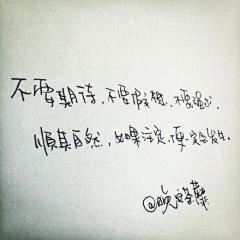 不要期待,不要假想,不要强求,
順其自然,如果注定,便一定会发生。
@晚安荼蘼